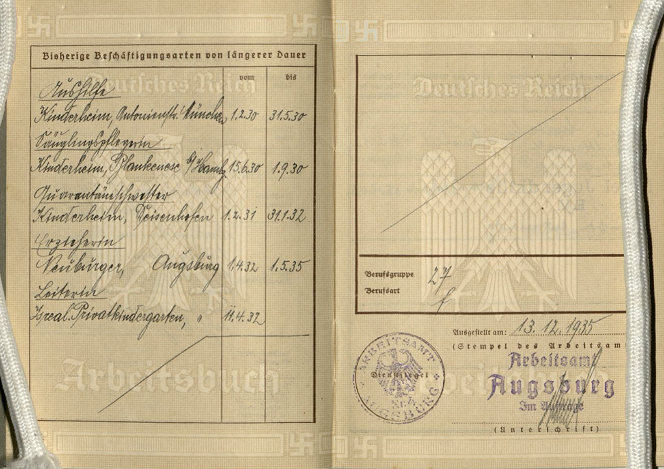 Bisherige Beschäftigungsarten von längerer Dauer
vom bis
Aushilfe
Kinderheim, Antonienstr. München, 1.2.30 31.5.30
Säuglingspflegerin
Kinderheim, Blankenese b/Hambg. 15.6.30 1.9.30
Quarantänschwester
Kinderheim, Deisenhofen 1.2.31 31.1.32
Erzieherin
Neuburger, Augsburg 1.4.32 1.5.35
Leiterin
Isreal. Privatkindergarten, "
Arbeitsbuch
Deutsches Reich
Berufsgruppe 27
Berufsart f
Ausgestellt am: 13.12.1935
(Stempel des Arbeitsam
Arbeitsamt
Augsburg
Im Auftrage
(Unterschrift)
ARBEITSAMT
Dienstsiegel
Nr. 4
AUGSBURG